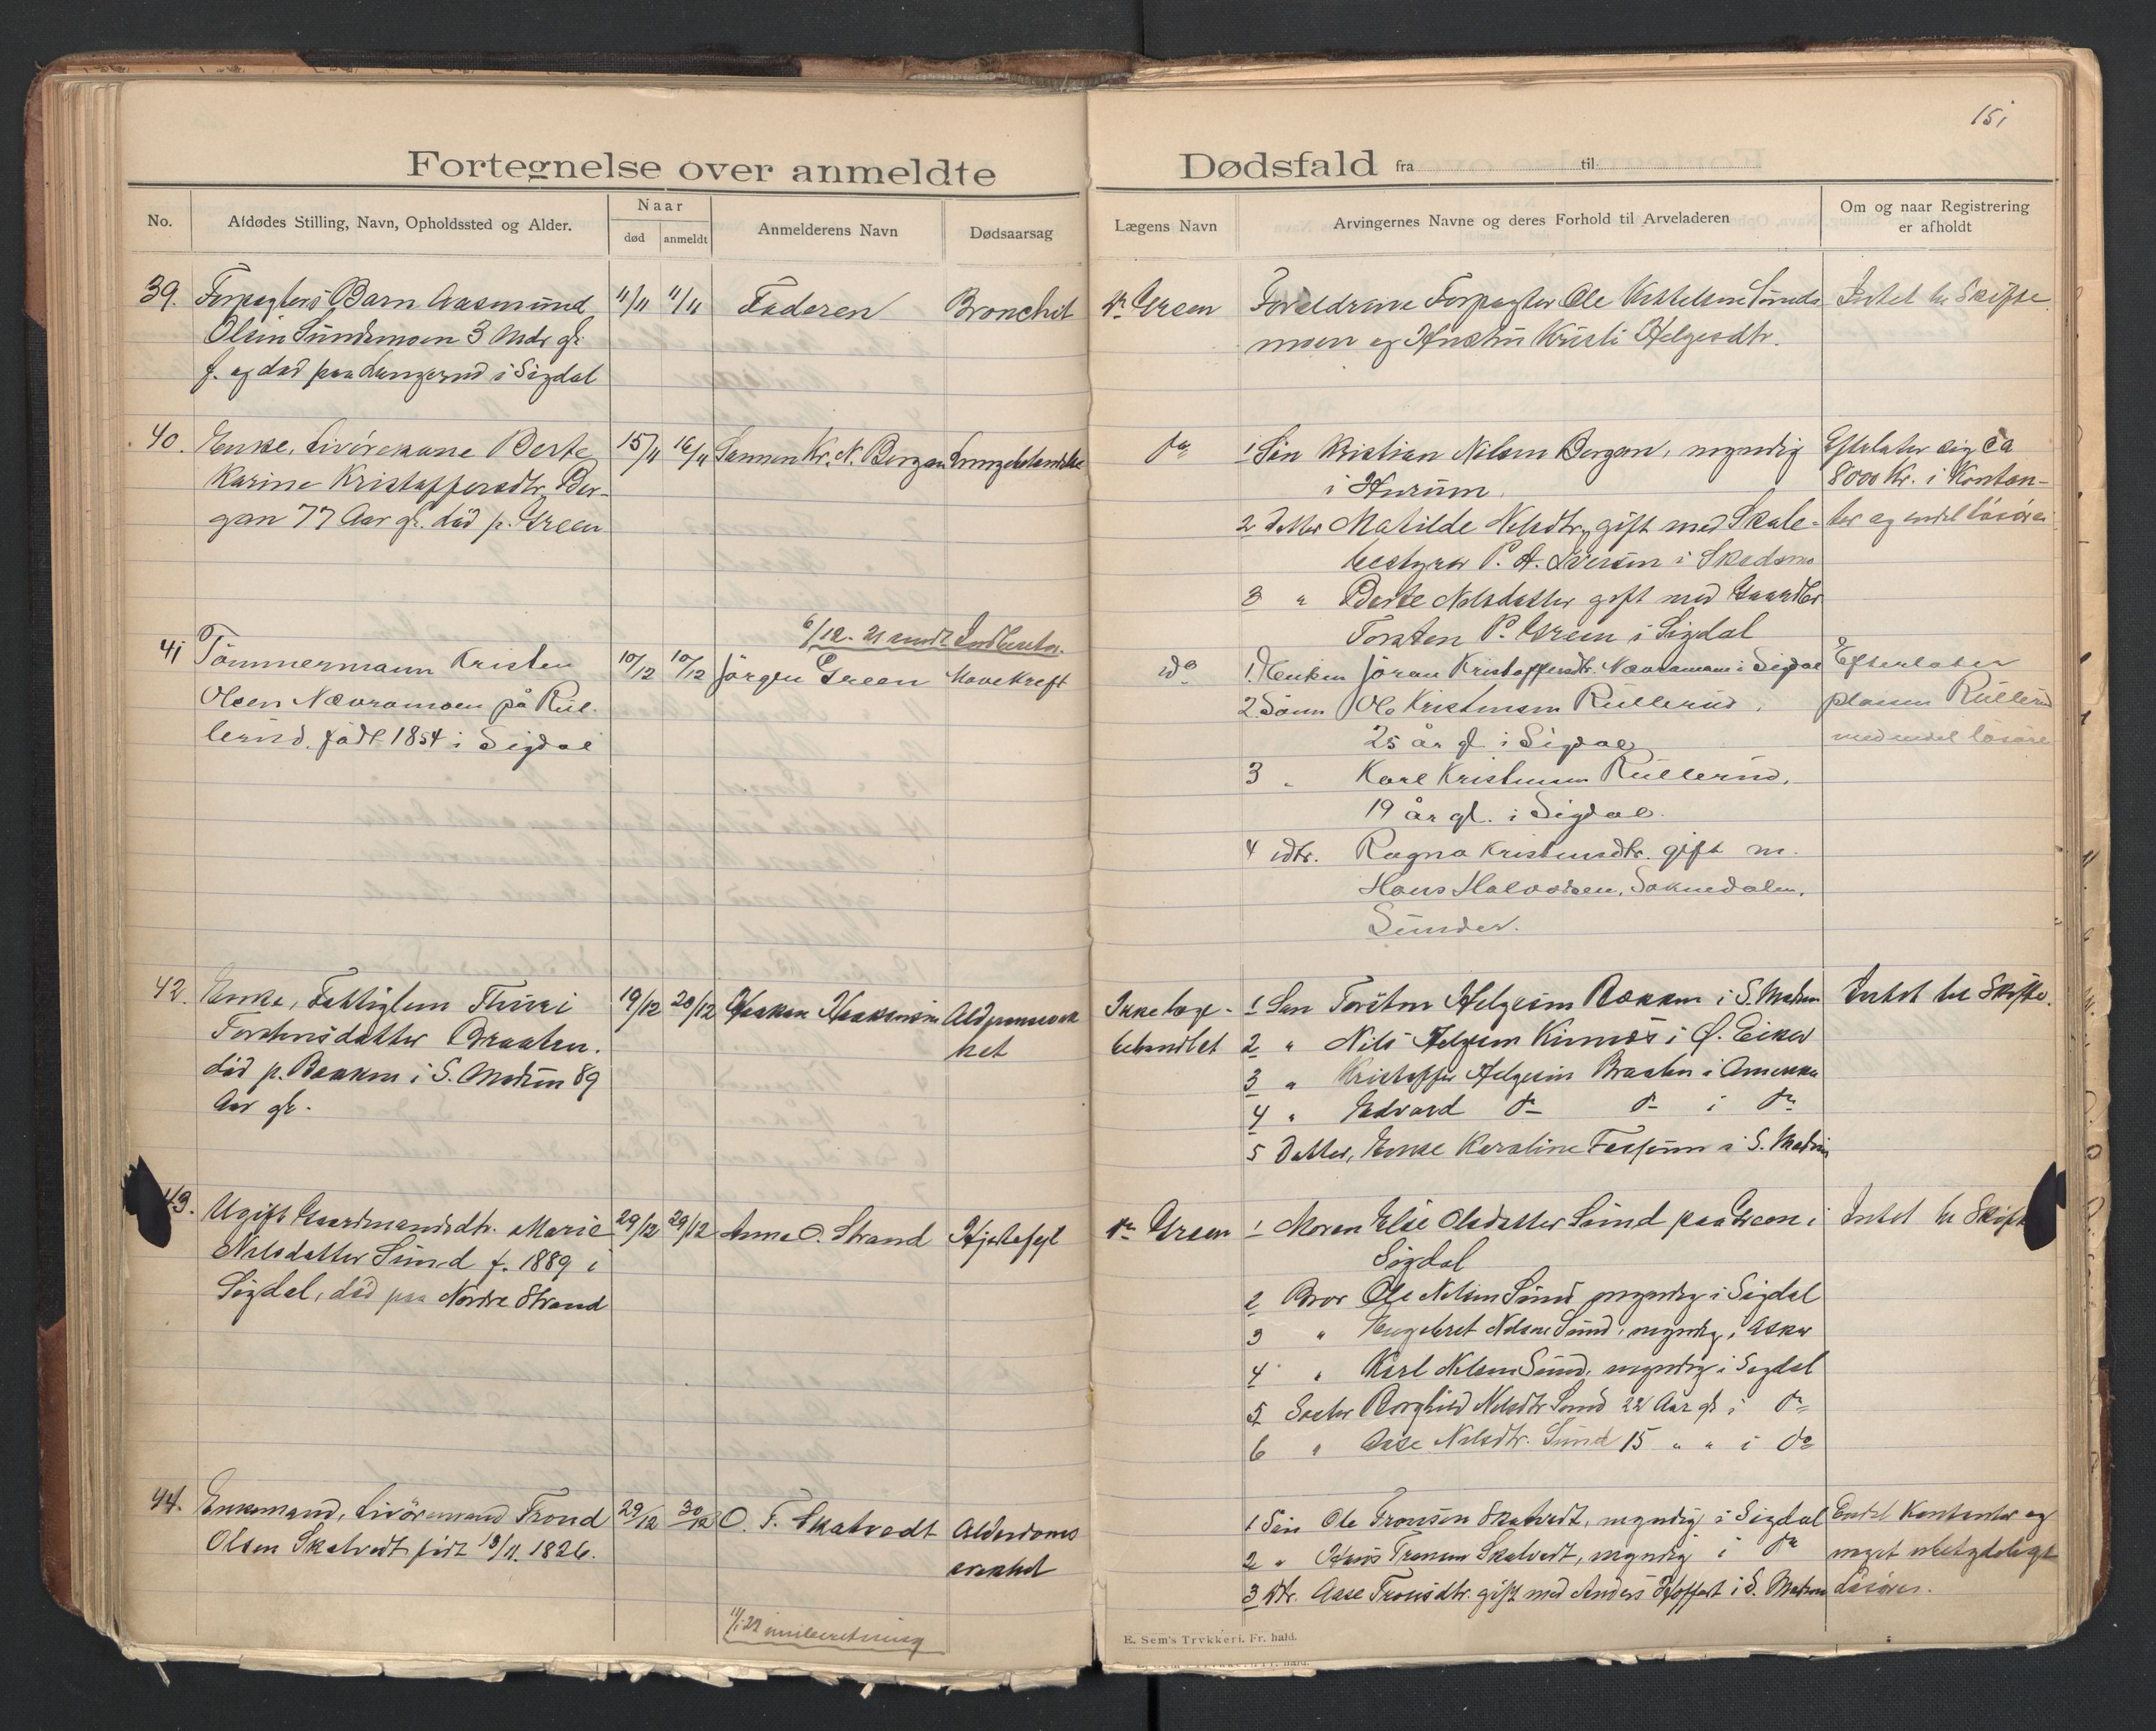 151
Fortegnelse over anmeldte Dødsfald fra til
No.
Afdødes Stilling, Navn, Opholdssted og Alder.
Naar
død
anmeldt
Anmelderens Navn
Dødsaarsag
Lægens Navn
Arvingernes Navne og deres Forhold til Arveladeren
Om og naar Registrering
er afholdt
39.
Forpagters Barn Aasmund
Olsen Sundemoen 3 Mdr gl.
f. og død paa Langerud i Sigdal
4/11
4/11
Faderen
Bronchit
Dr Green
Foreldrene Forpagter Ole Kittelsen Sunde
moen og Hustru Kristi Helgesdtr.
Intet til Skifte
40.
Enke, Livörekone Berte
Karine Kristoffersdtr. Ber-
gan 77 Aar gl. död p. Green
15/11
16/11
Sønnen Kr. N. Bergan
Lungebetændelse
do
1 Sön Kristian Nilsen Bergan, myndig
i Hurum
2 Datter Matilde Nilsdtr, gift med Skole-
bestyrer P. A. Iversen i Skedsmo
3 " Berte Nilsdatter gift med Gaardbr
Torsten P. Green i Sigdal
Efterlater sig ca
8000 Kr. i Kontan-
ter og endel lösöre
6/12-21 sendt Indberetn.
41
Tömmermann Kristen
Olsen Nævramoen på Rul-
lerud. född 1854 i Sigdal
10/12
10/12
Jörgen Green
Mavekreft
do
1. Enken Jöran Kristoffersdtr. Nævramoen i Sigdal
2. Sönn Ole Kristensen Rullerud,
25 år gl i Sigdal
3 " Karl Kristensen Rullerud,
19 år gl. i Sigdal.
4 dtr. Ragna Kristensdtr. gift m.
Hans Halvorsen, Soknedalen,
Sunder.
Efterlater
plassen Rullerud
med endel lösöre
42.
Enke, Fattiglem Thuri
Torstensdatter Braaten.
död p. Bakken i S. Modum 89
Aar gl.
19/12
20/12
Haakon Haakonsen
Alderdomssvak
het
Ikke læge-
behandlet
1 Sön Torsten Helgesen Bakken i S. Modum
2 " Nils Helgesen Kinnes i Ø. Eiker
3 " Kristoffer Helgesen Braaten i Amerika
4 " Edvard do do i do
5 Datter, Enke Karoline Fossum i S. Modum
Intet til Skifte.
43.
Ugift Gaardmandsdtr. Marie
Nilsdatter Sund f. 1889 i
Sigdal, död paa Nordre Strand
29/12
29/12
Anna O. Strand
Hjertefejl
Dr Green
1 Moren Else Olsdatter Sund paa Green i
Sigdal
2 Bror Ole Nilsen Sund myndig i Sigdal
3 " Engebret Nilsen Sund, myndig i Asker
4 " Karl Nilsen Sund, myndig i Sigdal
5 Söster Borghild Nilsdtr Sund 22 Aar gl i do
6 " Aase Nilsdtr. Sund 15 " " i do
Intet til Skifte
44.
Enkemand, Livöremand Trond
Olsen Skatvedt födt 13/11. 1826.
29/12
30/12
O. T. Skatvedt
Alderdoms
svakhet
1 Sön Ole Tronsen Skatvedt, myndig i Sigdal
2 " Hans Tronsen Skatvedt, myndig i do
3 Dtr. Aase Tronsdtr. gift med Anders Hoffart i S. Modum
Endel Kontanter og
meget ubetydeligt
Lösöre.
11/1 22 innberetning
E. Sem's Trykkeri. Fr. hald.